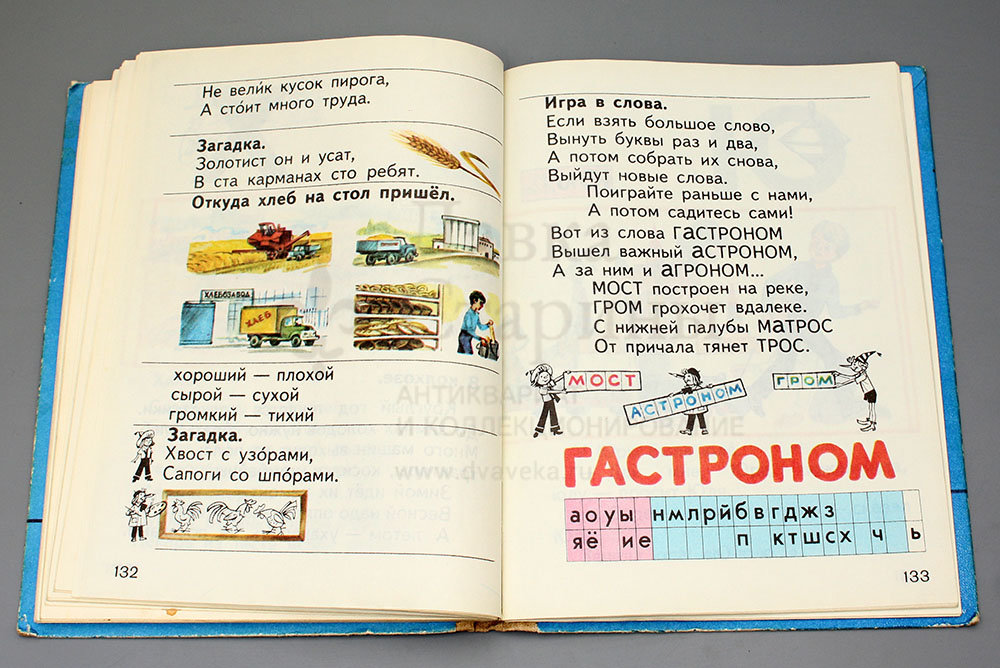 Не вели́к кусок пирога,
А сто́ит много труда.
Загадка.
Золотист он и усат,
В ста карманах сто ребят.
Откуда хлеб на стол пришёл.
ХЛЕБОЗАВОД
ХЛЕБ
хороший — плохой
сырой — сухой
громкий — тихий
Загадка.
Хвост с узо́рами,
Сапоги со шпо́рами.
132
Игра в слова.
Если взять большое слово,
Вынуть буквы раз и два,
А потом собрать их снова,
Выйдут новые слова.
Поиграйте раньше с нами,
А потом садитесь сами!
Вот из слова ГАСТРОНОМ
Вышел важный АСТРОНОМ,
А за ним и АГРОНОМ...
МОСТ построен на реке,
ГРОМ грохочет вдалеке.
С нижней палубы МАТРОС
От причала тянет ТРОС.
МОСТ
АСТРОНОМ
ГРОМ
ГАСТРОНОМ
а о у ы н м л р й б в г д ж з
я ё и е п к т ш с х ч ь
133
АНТИКВАРИАТ
И КОЛЛЕКЦИОНИРОВАНИЕ
www.dvaveka.ru